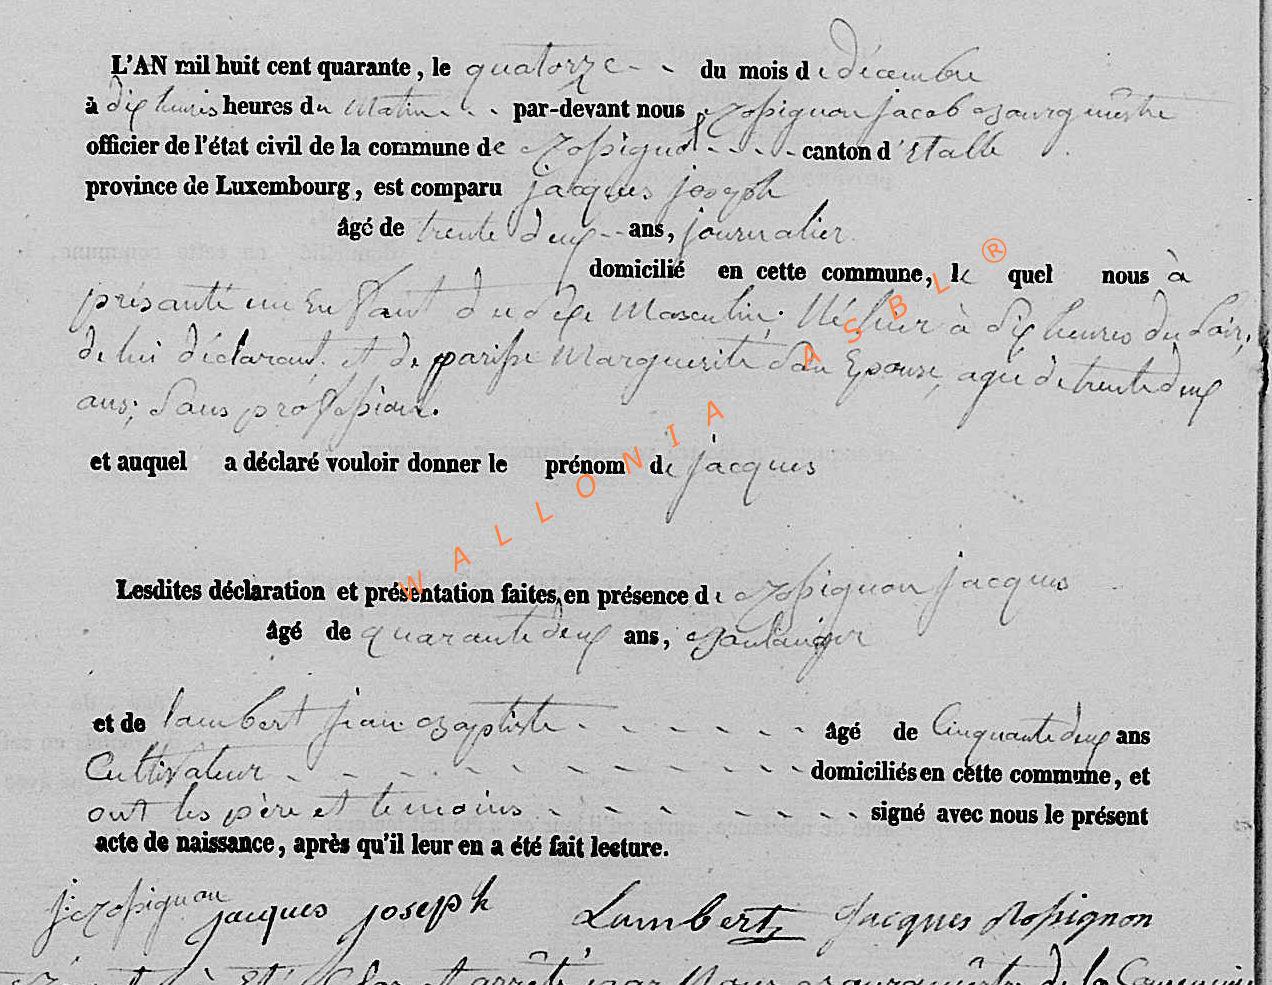 L'AN mil huit cent quarante, le quatorze - - du mois de décembre
à dix heures heures du Matin - - - par-devant nous Rossignon jacob Bourguèstre
officier de l'état civil de la commune de Rossignol - - - - canton d'Etalle
province de Luxembourg, est comparu jacques joseph
âgé de trente deux -- ans, journalier
domicilié en cette commune, le quel nous à
présanté un Enfant du sexe Masculin; Né hier à dix heures du Soir,
de lui déclarant, et de parisse Marguerite Son Epouse, agée de trente deux
ans; Sans profession.
et auquel a déclaré vouloir donner le prénom de jacques
Lesdites déclaration et présentation faites, en présence de Rossignon jacques
âgé de quarante deux ans, Boulanger
et de lambert jean Baptiste - - - - - - âgé de Cinquante deux ans
Cultivateur - - - - - - - - - - - - domiciliés en cette commune, et
ont les père et temoins - - - - - - - signé avec nous le présent
acte de naissance, après qu'il leur en a été fait lecture.
j: Rossignon jacques joseph Lambert Jacques Rossignon
arrêté par Nous Bourguèmstre de la Commune
WALLONIA ASBL ®